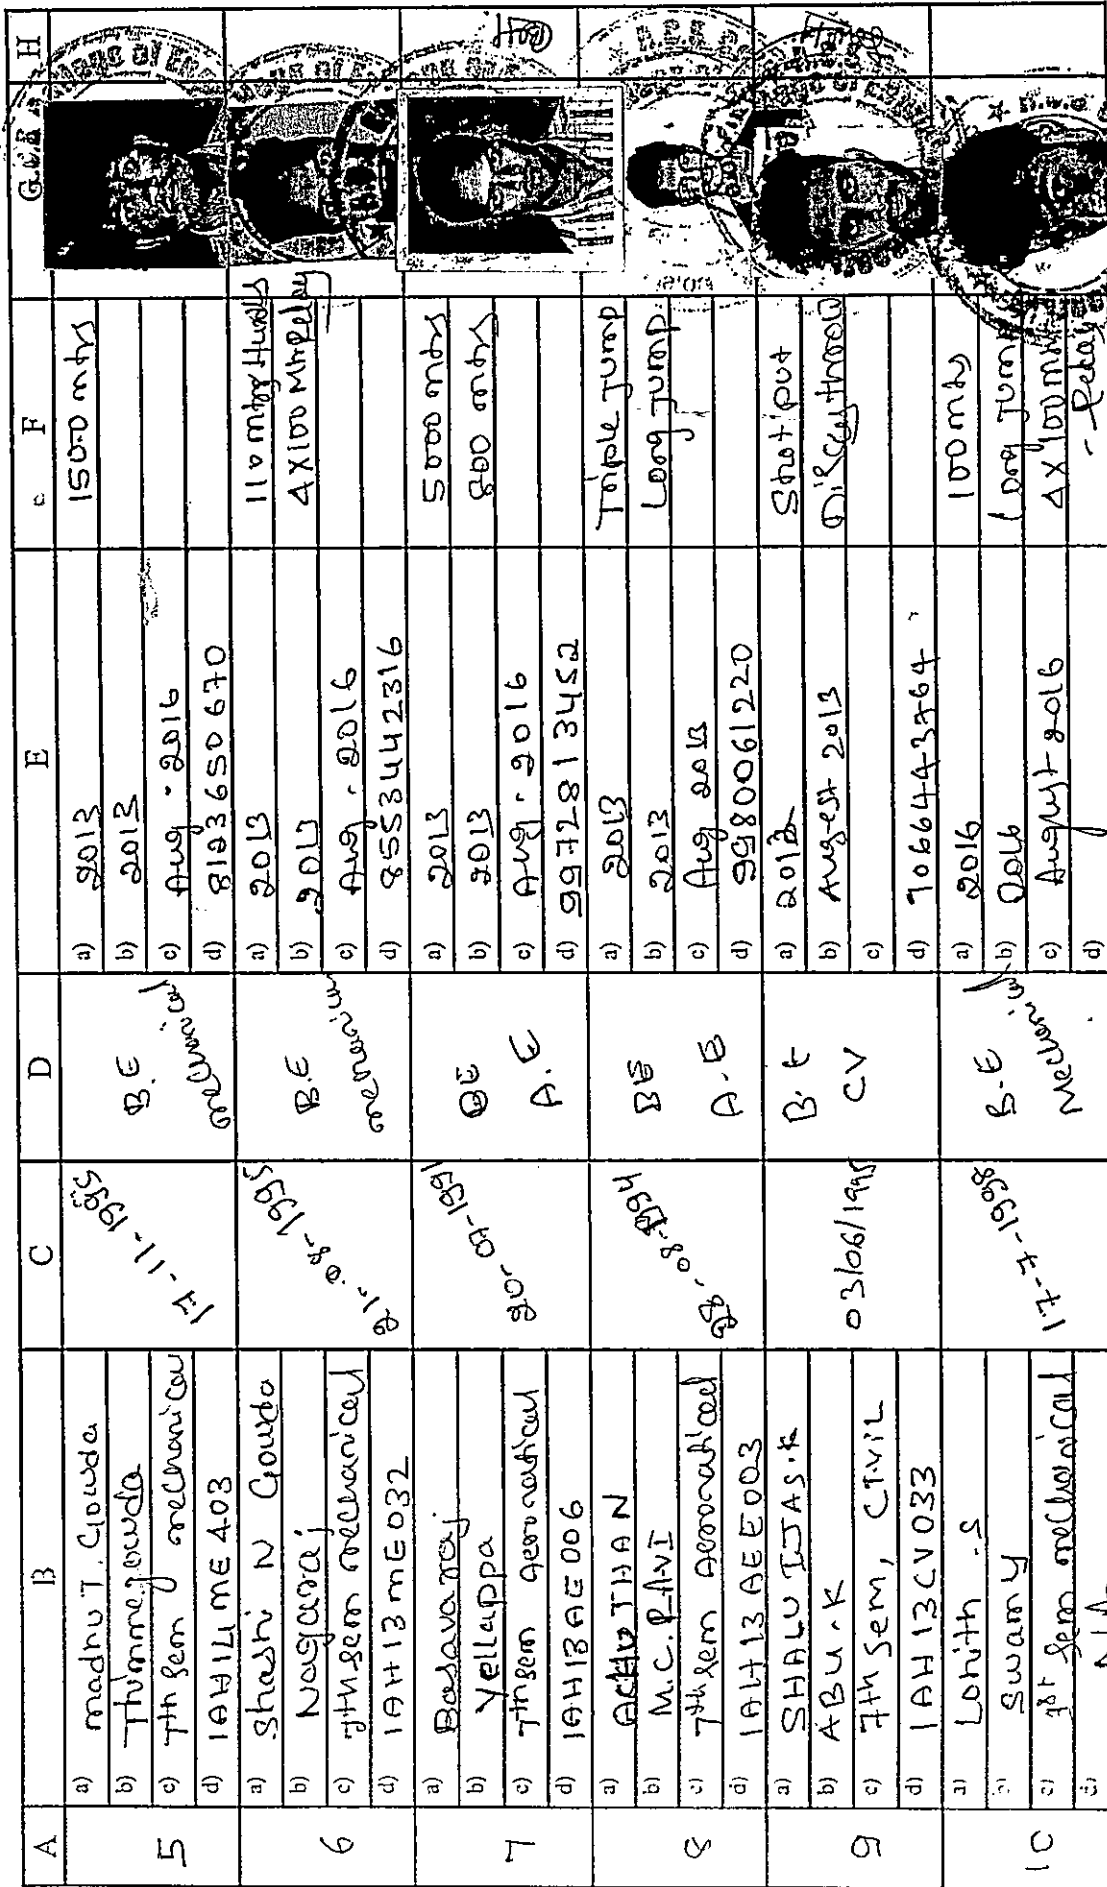 A B C D E F G H
5
a) madhu T. Gowda
b) Thimmegowda
c) 7th sem mechanical
d) 1AH14ME403
17-11-1995
B.E
mechanical
a) 2013
b) 2013
c) Aug - 2016
d) 8123650670
1500 mtrs
6
a) Shashi N Gowda
b) Nagaraj
c) 7th sem mechanical
d) 1AH13ME032
21-08-1995
B.E
mechanical
a) 2013
b) 2013
c) Aug - 2016
d) 8553442316
110 mtrs Hurdls
4X100 Mtr Relay
7
a) Basavaraj
b) Yellappa
c) 7th sem Aeronatical
d) 1AH13AE006
BE
A.E
a) 2013
b) 2013
c) Aug - 2016
d) 9972813452
5000 mtrs
800 mtrs
8
a)
b) M.C. RAVI
c) 7th sem Aeronatical
d) 1AH13AE003
28-08-1994
BE
A.E
a) 2013
b) 2013
c) Aug 2013
d) 9980061220
Triple Jump
Long Jump
9
a) SHALU IJAS.K
b) ABU.K
c) 7th Sem, CIVIL
d) 1AH13CV033
03/06/1995
B.E
CV
a) 2013
b) Augest 2013
c)
d) 9066443764
Shot put
Discus throw
10
a) Lohith .S
b) Swamy
c) 1st sem mechanical
d) NA
17-7-1998
B.E
Mechanical
a) 2016
b) 2016
c) August 2016
d)
100 mts
Long Jump
4X100 mtr
- Relay